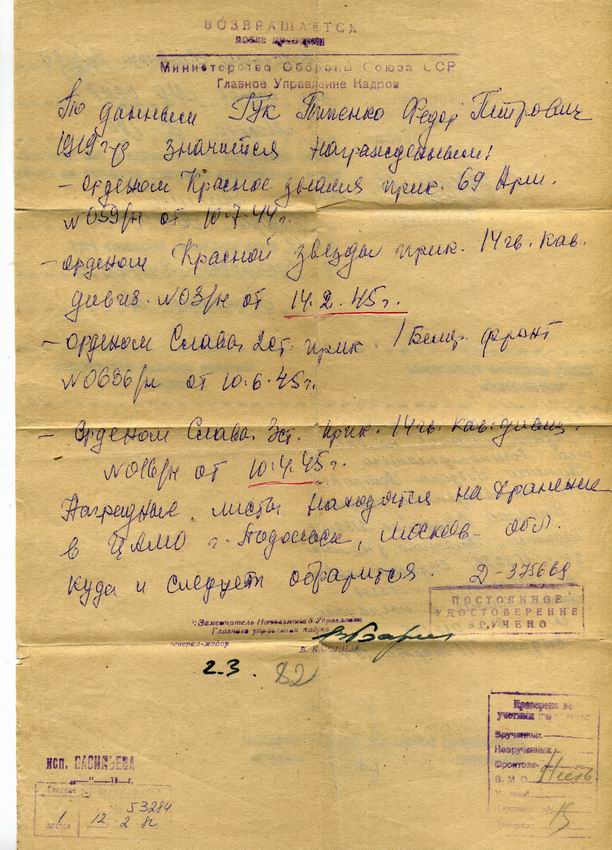 ВОЗВРАЩАЕТСЯ
Министерство Обороны Союза ССР
Главное Управление Кадров
По данным ГУК Пипенко Федор Петрович
1919 г/р значится награжденным:
- орденом Красное знамя прик. 69 Арм.
№ 059/н от 10.7.44г.
- орденом Красной звезды прик. 14 гв. кав.
дивиз. № 03/н от 14.2.45г.
- орденом Слава 2 ст. прик. 1 Белор. фронт
№ 0636/н от 10.6.45г.
- Орденом Слава 3 ст. прик. 14 гв. кав. дивиз.
№ 016/н от 10.4.45г.
Наградные листы находятся на хранении
в ЦАМО г. Подольск, Москов. обл.
куда и следует обратится. Д-375669
ПОСТОЯННОЕ
УДОСТОВЕРЕНИЕ
ВРУЧЕНО
Заместитель Начальника 3 Управления
Главного управления кадров
генерал-майор
2.3. 82
Проверено по
Врученных
Неврученных
Фронтов.
В.М.О.
Нет
исп. ВАСИЛЬЕВА
"__" 19 г.
Главное
№ 53284
1 листов 12 2 82